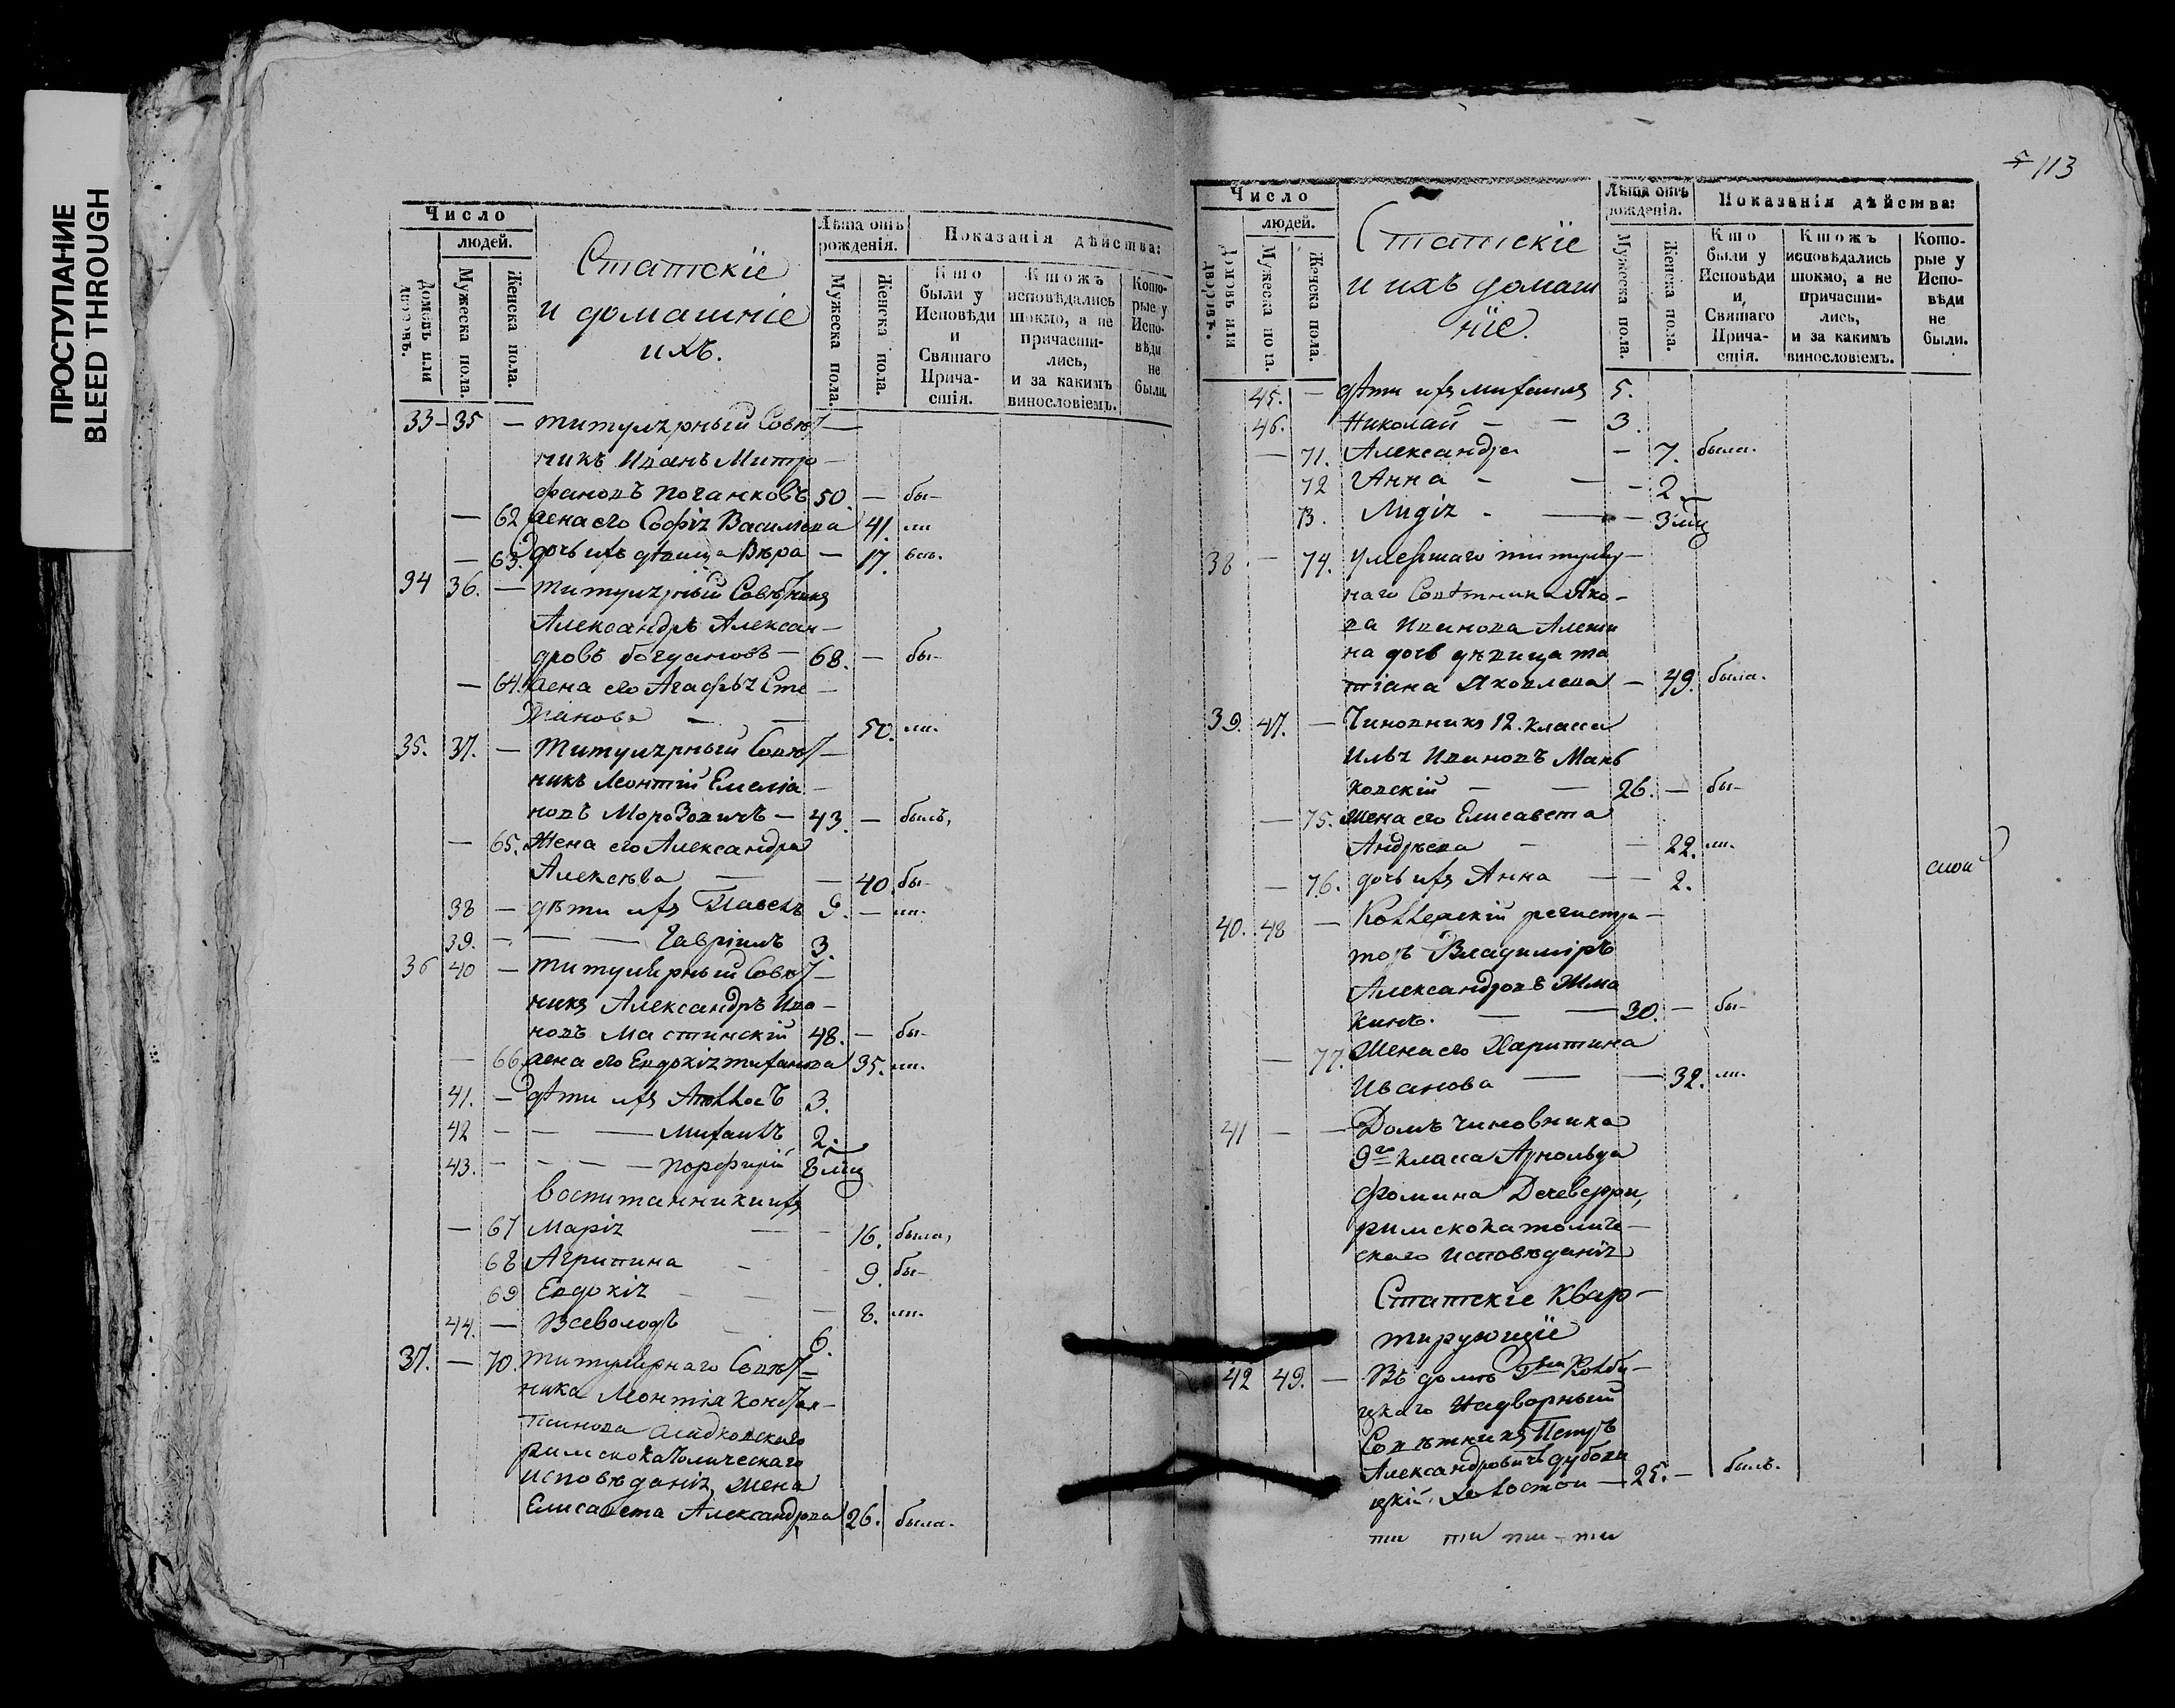 ПРОСТУПАНИЕ
BLEED THROUGH
Число
людей.
Домовъ или дворовъ.
Мужеска пола.
Женска пола.
Статскіе
и домашніе
ихъ.
Лѣта отъ рожденія.
Мужеска пола.
Женска пола.
Показанія дѣйства:
Кто были у Исповѣди и Святаго Прича-стія.
Ктожъ исповѣдались токмо, а не причасти-лись, и за какимъ винословіемъ.
Кото-рые у Испо-вѣди не были.
33 - 35 — титулярный Совѣт—
никъ Иванъ Митро—
фановъ Поганковъ 50. — бы—
— 62 жена его Софія Васильева 41. ли
— 63. дочь ихъ дѣвица Вѣра — 17.
34 36. — титулярный Совѣтникъ
Александръ Алексан—
дровъ Богдановъ — 68. — бы—
— 64. жена его Агафья Сте—
панова — — 50. ли.
35. 37. — Титулярный Совѣт—
никъ Леонтій Емелія—
новъ Морозовичъ — 43. — былъ,
— 65. Жена его Александра
Алексѣва — — 40. бы—
38 — дѣти ихъ Павелъ 9. — ли.
39. — — — Гавріилъ 3.
36 40 — титулярный Совѣт—
никъ Александръ Ива—
новъ Мастинскій 48. — бы—
— 66. жена его Евдокія Тиханова 35. ли.
41. — дѣти ихъ Аполлосъ 3.
42 — — — Михаилъ 2.
43. — — — — Порфирій 8 мц
воспитанники ихъ
— 67 Марія — — 16. была,
68 Агрипина — 9. бы—
69 Евдокія — — — 8. ли.
44. — Всеволодъ — 6.
37. — 70. титулярнаго Совѣт=
ника Леонтія Констан—
тинова
римскокатолическаго
исповѣданія, жена
Елисавета Александрова 26. была.
5 113
Число
людей.
Домовъ или дворовъ.
Мужеска пола.
Женска пола.
Статскіе
и ихъ домаш
ніе.
Лѣта отъ рожденія.
Мужеска пола.
Женска пола.
Показанія дѣйства:
Кто были у Исповѣди и, Святаго Прича-стія.
Ктожъ исповѣдались токмо, а не причасти-лись, и за какимъ винословіемъ.
Кото-рые у Испо-вѣди не были.
45. — дѣти ихъ Михаилъ 5.
46. Николай — — 3.
— 71. Александра — 7. была.
72 Анна — — — 2
73. Лидія — — — 3 мц
38. — 74. умершаго титуляр—
наго Совѣтника Яко—
ва Иванова Алехи
на дочь дѣвица та
тіана Яковлева — 49. была.
39. 47. — Чиновникъ 12. класса
Илья Ивановъ Мань
ковскій — — 26. — бы—
— 75. Жена его Елисавета
Андрѣева — — 22. ли.
— 76. дочь ихъ Анна — — 2.
40. 48 — Коллежскій регистра—
торъ Владиміръ
Александровъ Шма
кинъ. — — 30. — бы—
— 77. Жена его Харитина
Иванова — — 32. ли.
41 — — Домъ чиновника
9го класса Арнольда
Фомина Дечеверри,
римскокатоличе—
скаго исповѣданія
Статскіе Квар—
тирующіе
42 49. — Въ домѣ
Надворный
Совѣтникъ Петръ
Александровичъ Дубови
цкій, холостой — 25. — былъ.